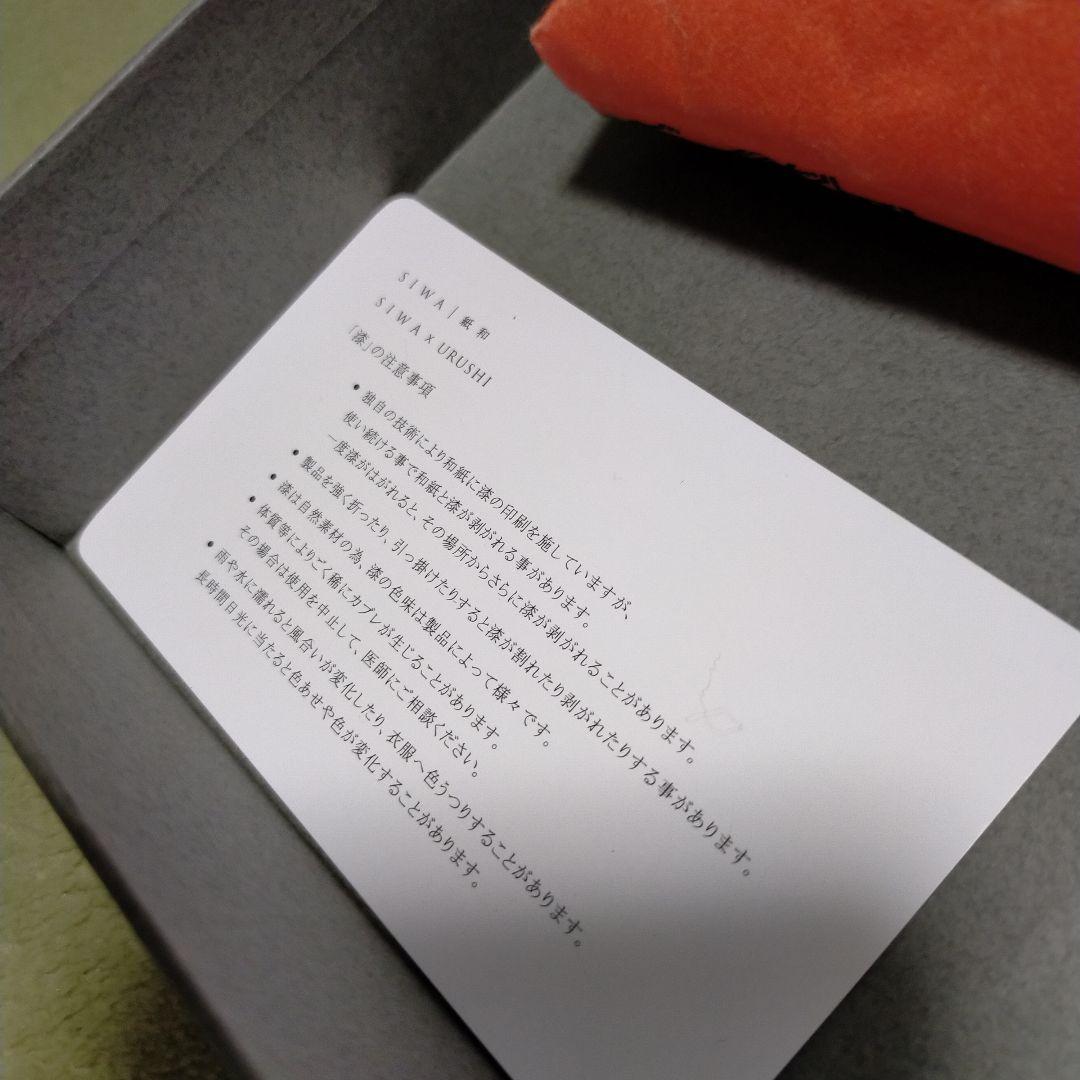 SIWA | 紙和
SIWA x URUSHI
「漆」の注意事項
● 独自の技術により和紙に漆の印刷を施していますが、
使い続ける事で和紙と漆が剥がれる事があります。
一度漆がはがれると、その場所からさらに漆が剥がれることがあります。
● 製品を強く折ったり、引っ掛けたりすると漆が割れたり剥がれたりする事があります。
● 漆は自然素材の為、漆の色味は製品によって様々です。
● 体質等によりごく稀にカブレが生じることがあります。
その場合は使用を中止して、医師にご相談ください。
● 雨や水に濡れると風合いが変化したり、衣服へ色うつりすることがあります。
長時間日光に当たると色あせや色が変化することがあります。